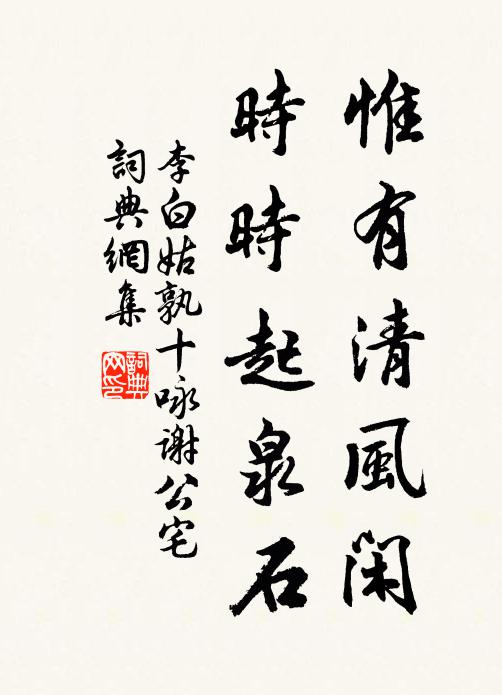 惟有清風閑
時時起泉石
李白姑孰十咏謝公宅
詞典網集
詞典网印